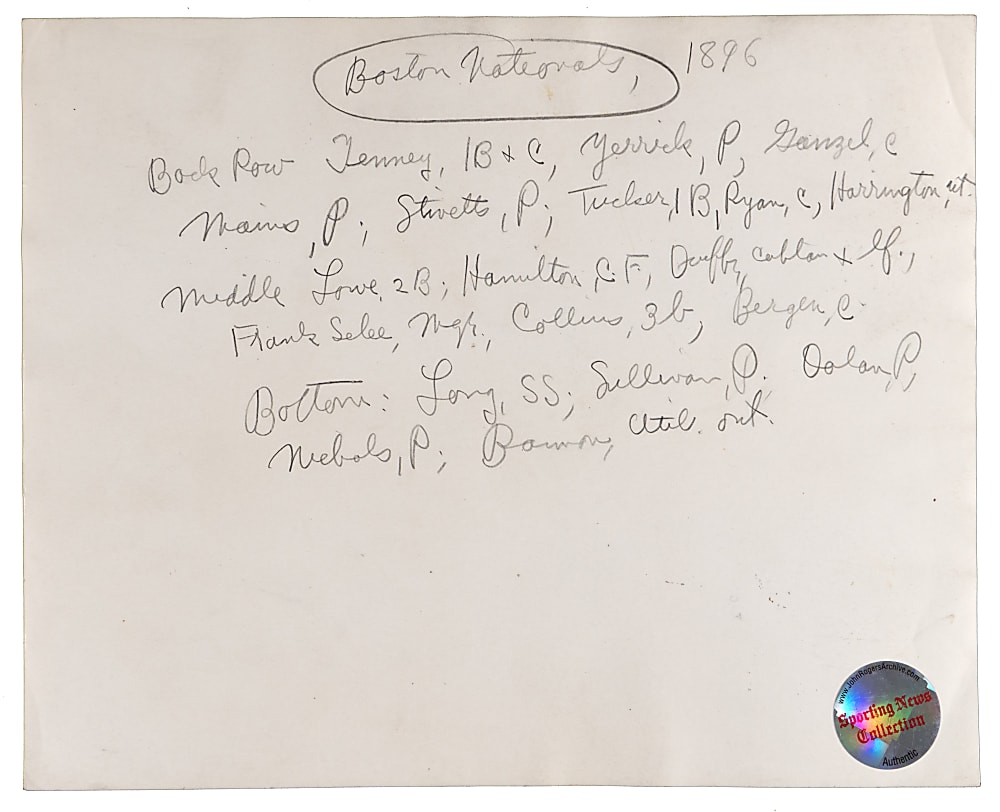 Boston Nationals, 1896
Back Row Tenney, 1B + C, Yerrick, P, Ganzel, C
Mains, P; Stivetts, P; Tucker, 1B, Ryan, C, Harrington, ut.
Middle Lowe, 2B; Hamilton, C.F, Duffy, captan + lf.,
Frank Selee, Mgr., Collins, 3b, Bergen, C.
Bottom: Long, SS; Sullivan, P. Dolan, P,
Nichols, P; Bannon, Util. out.
www.JohnRogersArchive.com
Sporting News
Collection
Authentic